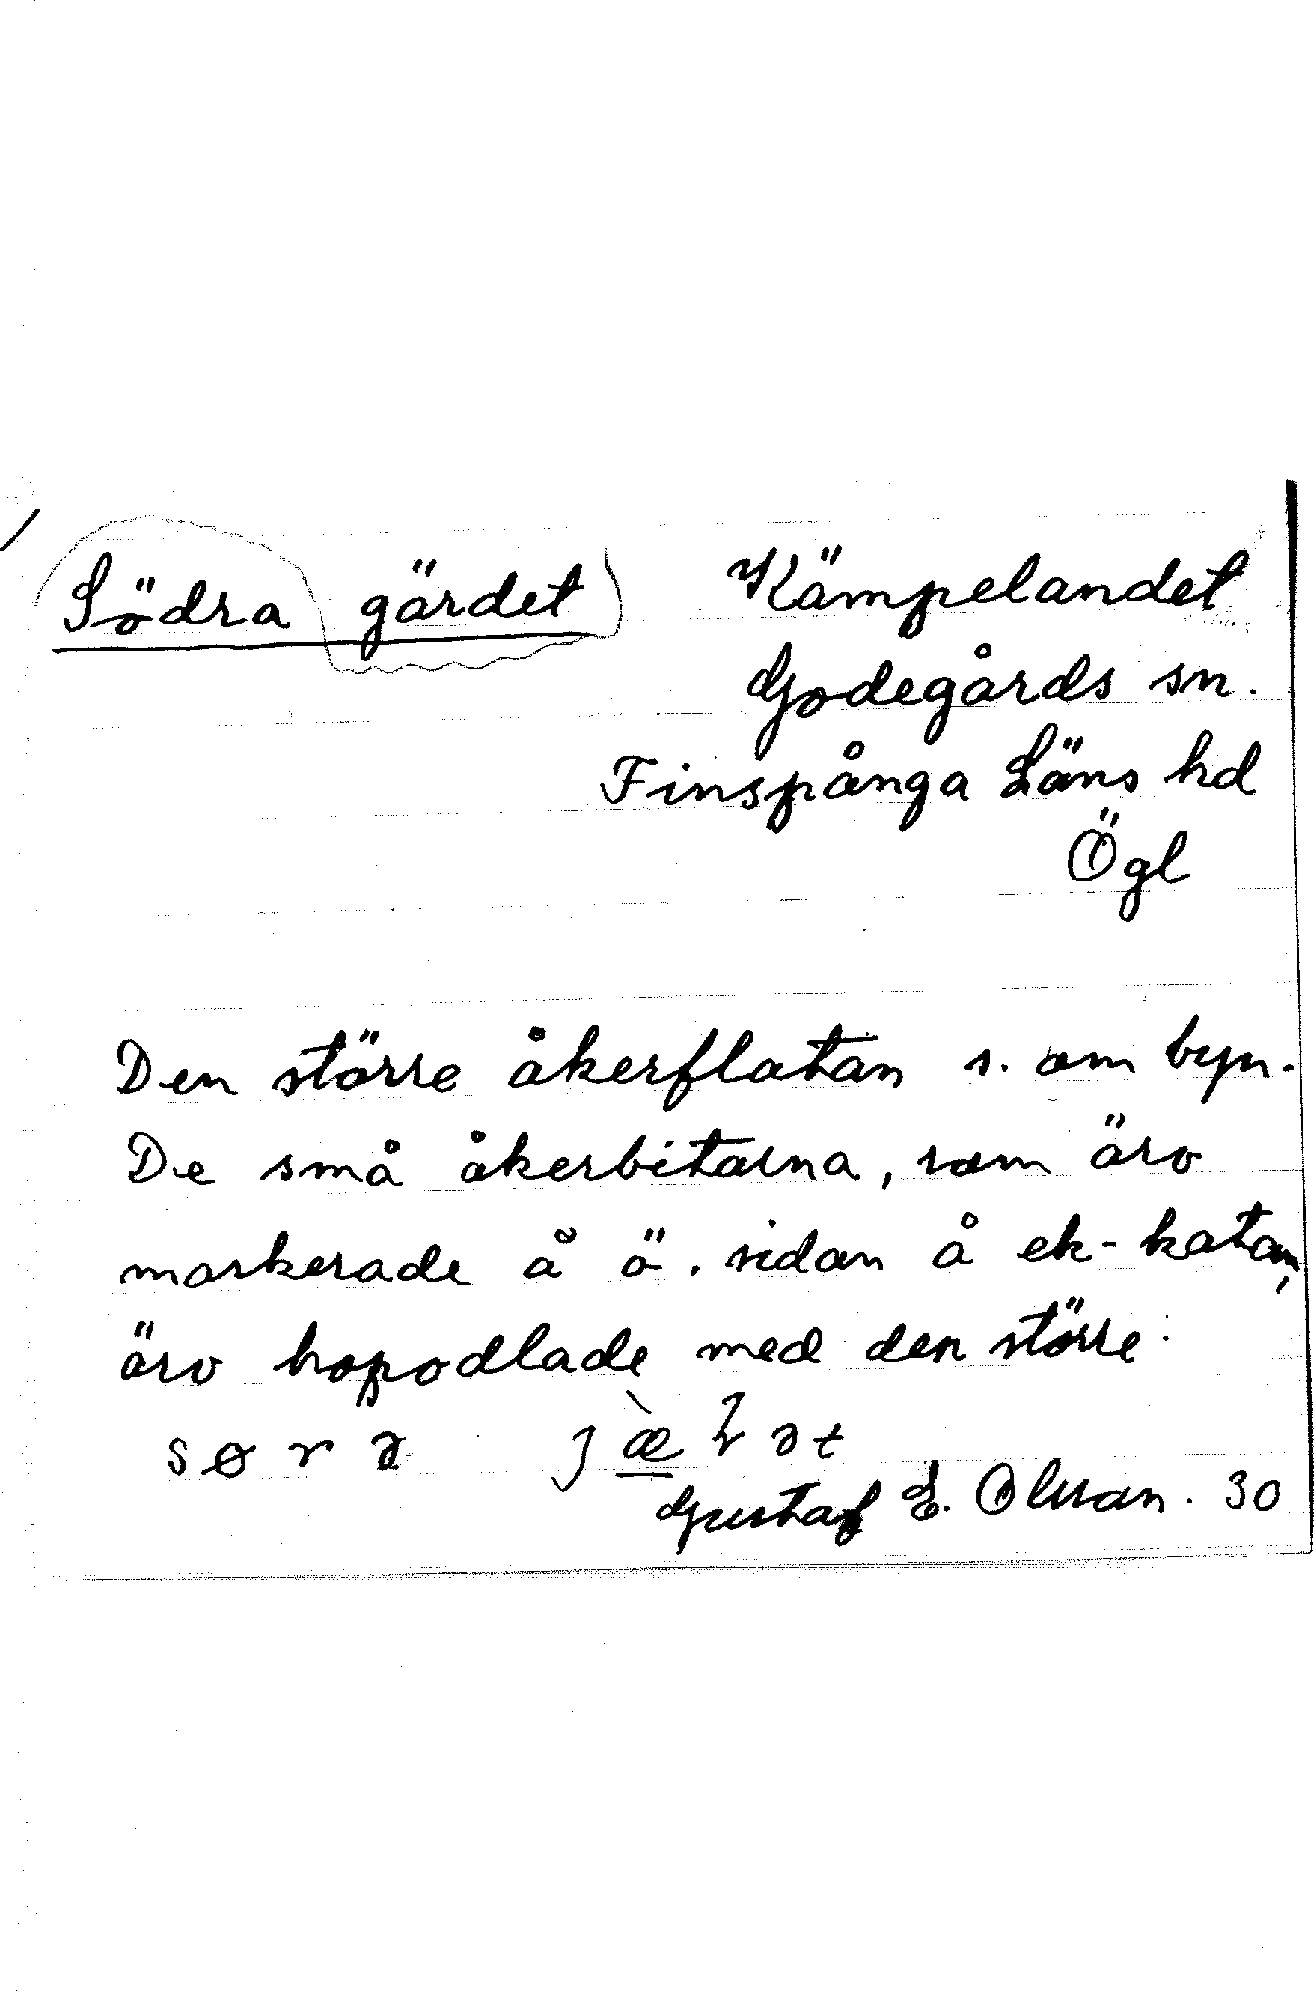 Södra gärdet
Kämpelandet
Godegårds sn.
Finspånga Läns hd
Ögl
Den större åkerflatan s. om byn.
De små åkerbitarna, som äro
markerade å ö. sidan å ek-katan,
äro hopodlade med den större.
Gustaf E. Olsson. 30